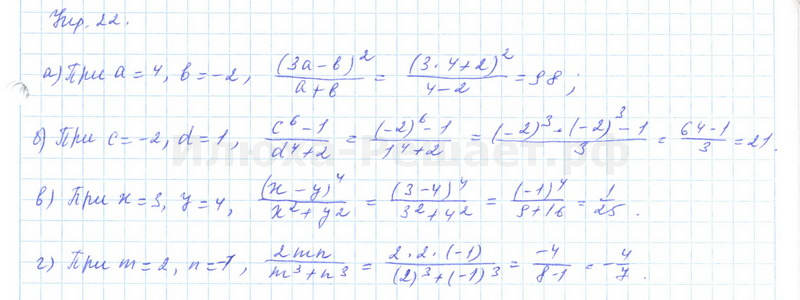 Упр. 22.
а) При a = 4, b = -2, (3a - b)^2 / (a + b) = (3·4+2)^2 / (4-2) = 98;
б) При c = -2, d = 1, (c^6 - 1) / (d^4 + 2) = ((-2)^6 - 1) / (1^4 + 2) = ((-2)^3·(-2)^3 - 1) / 3 = (64 - 1) / 3 = 21.
в) При x = 3, y = 4, (x - y)^4 / (x^2 + y^2) = (3 - 4)^4 / (3^2 + 4^2) = (-1)^4 / (9 + 16) = 1 / 25.
г) При m = 2, n = -1, 2mn / (m^3 + n^3) = 2·2·(-1) / ((2)^3 + (-1)^3) = -4 / (8 - 1) = -4/7.
Илюха-Решает.рф